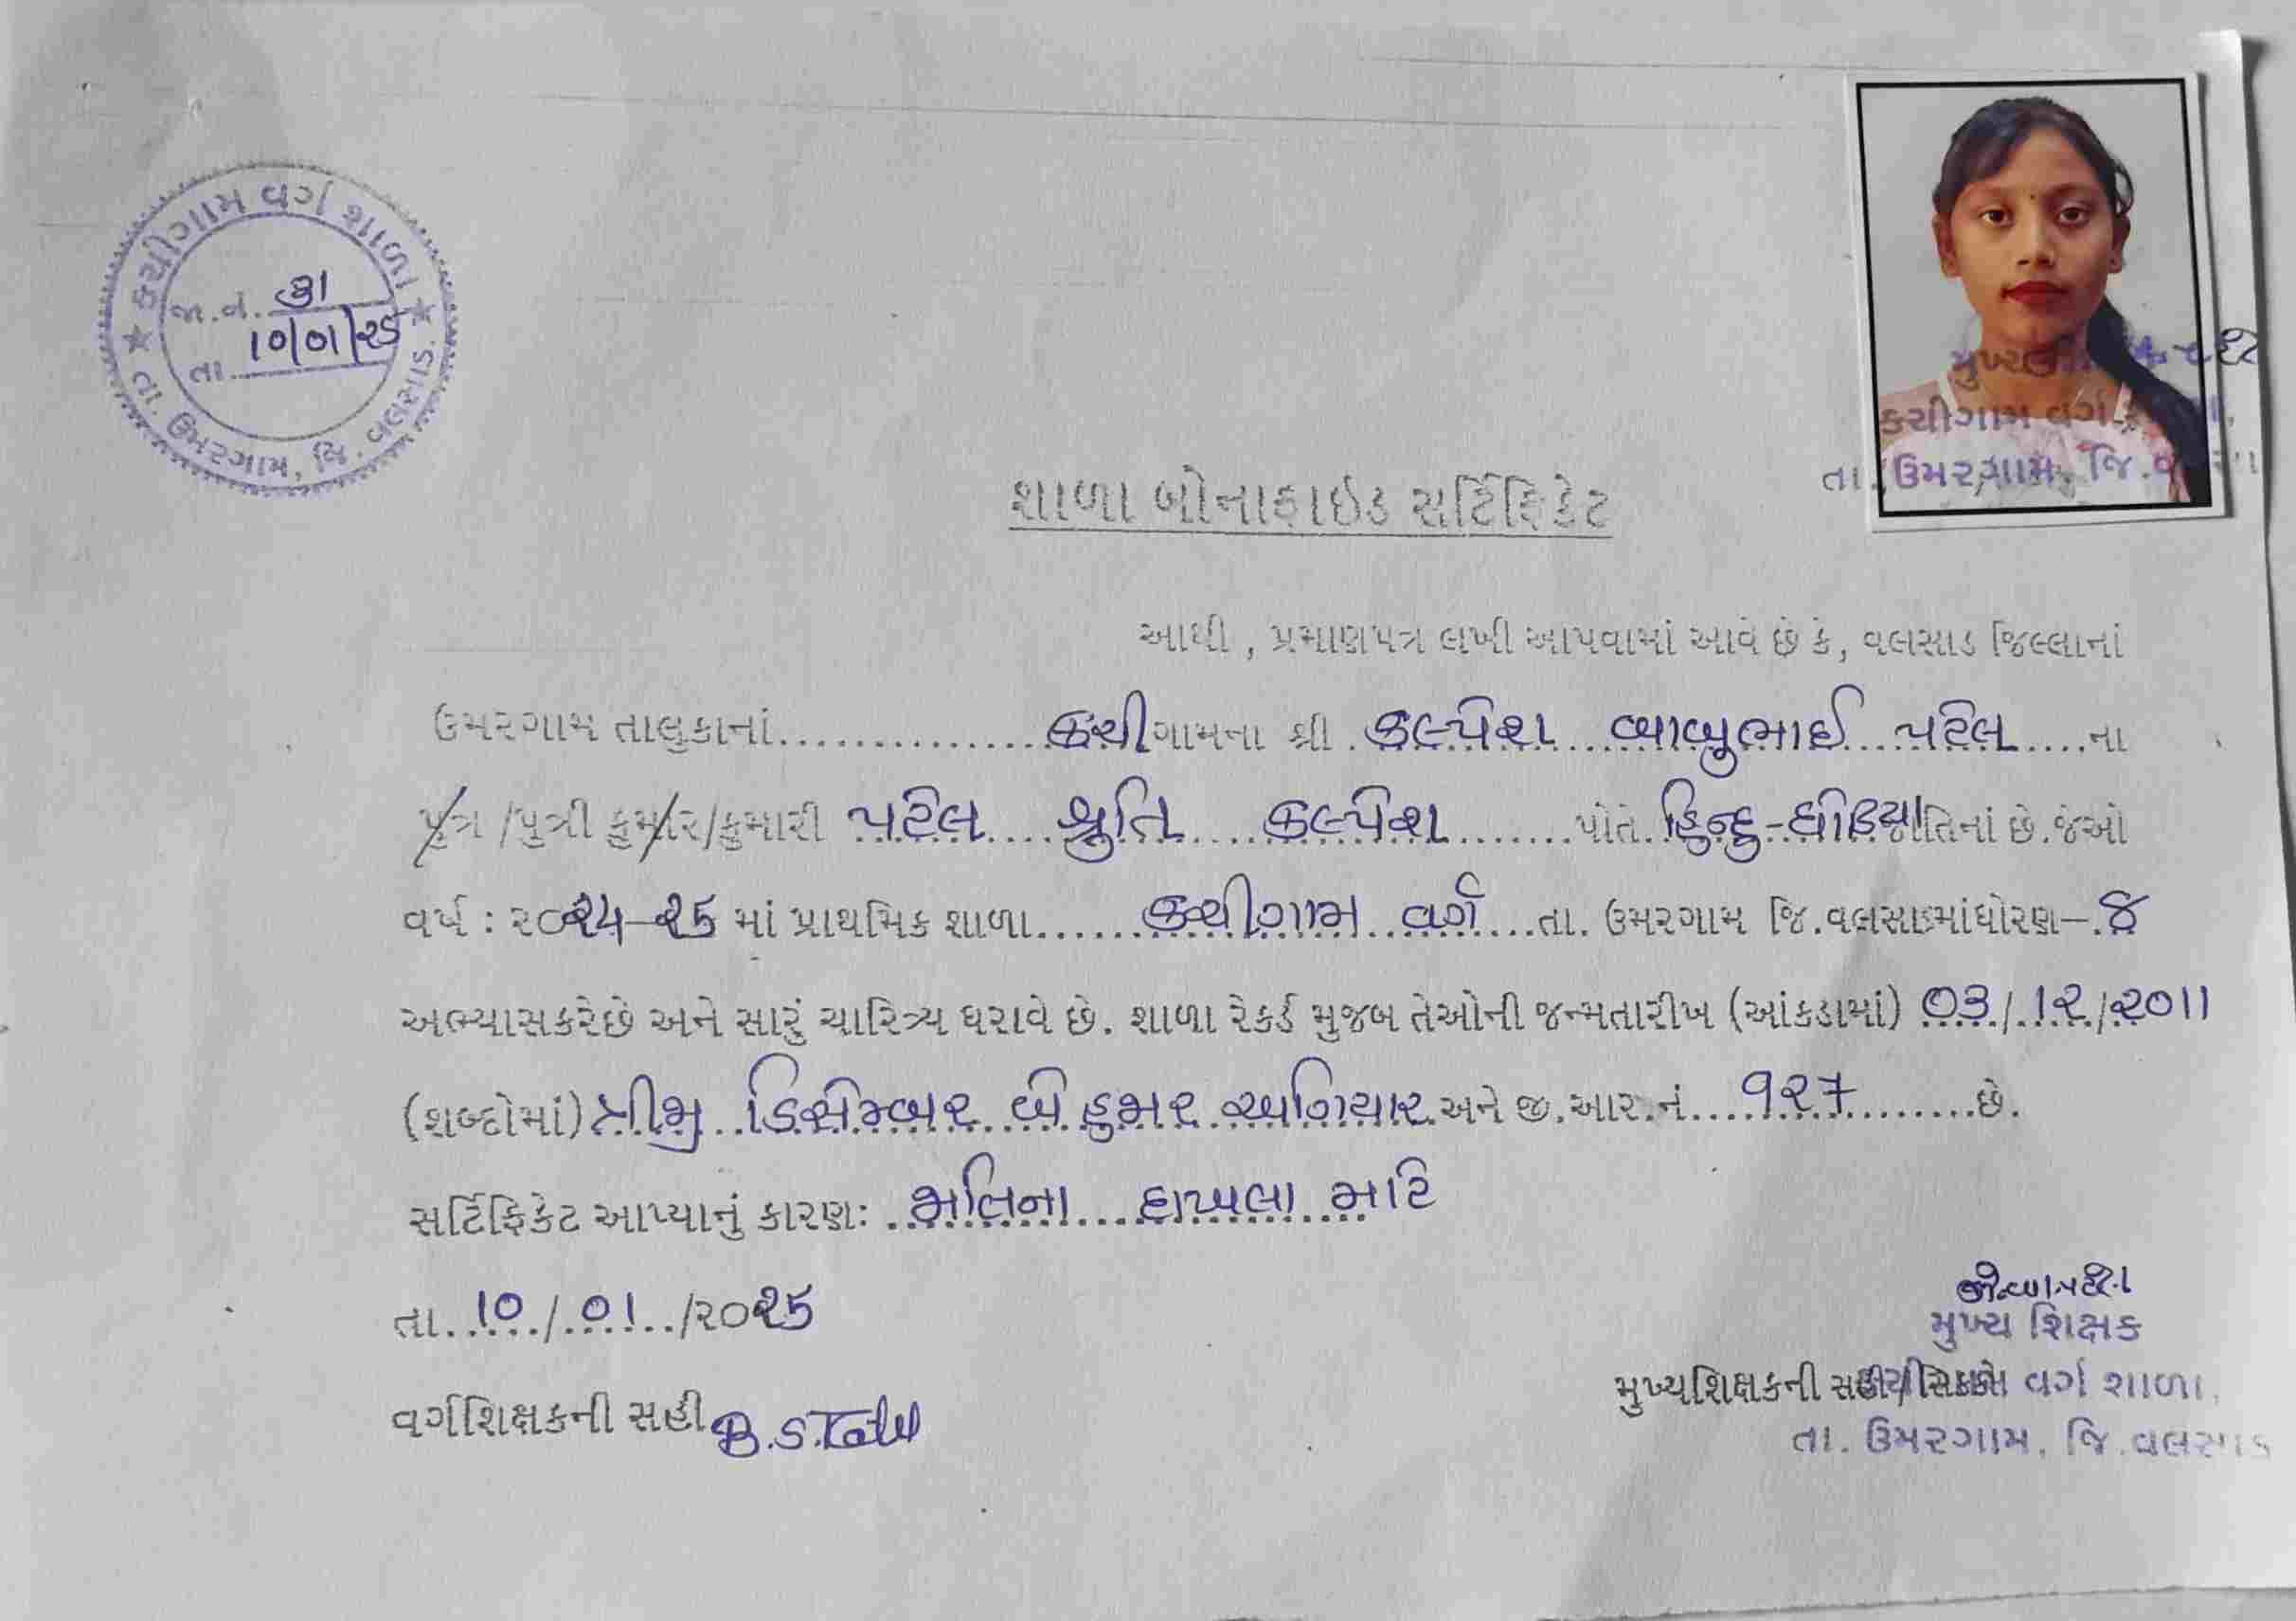 કચીગામ વર્ગ શાળા
જા.નં. 31
તા. 10/01/25
તા. ઉમરગામ, જિ. વલસાડ.
કચીગામ વર્ગ
તા. ઉમરગામ, જિ.
શાળા બોનાફાઇડ સર્ટિફિકેટ
આથી , પ્રમાણપત્ર લખી આપવામાં આવે છે કે, વલસાડ જિલ્લાનાં
ઉમરગામ તાલુકાનાં................કચીગામના શ્રી .કલ્પેશ બાબુભાઈ પટેલ....ના
પુત્ર /પુત્રી કુમાર/કુમારી પટેલ....શ્રુતિ....કલ્પેશ.......પોતે.હિન્દુ-ધોડિયા જાતિનાં છે.જેઓ
વર્ષ : ૨૦૨૪-૨૫ માં પ્રાથમિક શાળા......કચીગામ વર્ગ...તા. ઉમરગામ જિ.વલસાડમાંધોરણ-.૭
અભ્યાસકરેછે અને સારું ચારિત્ર્ય ધરાવે છે. શાળા રેકર્ડ મુજબ તેઓની જન્મતારીખ (આંકડામાં) 03/12/2011
(શબ્દોમાં) ત્રીજી ડિસેમ્બર બે હજાર અગિયાર અને જી.આર.નં....૧૨૭.......છે.
સર્ટિફિકેટ આપ્યાનું કારણ: જાતિના દાખલા માટે
તા..10../.01../૨૦૨૫
મુખ્ય શિક્ષક
મુખ્યશિક્ષકની સહી/સિક્કો વર્ગ શાળા,
વર્ગશિક્ષકની સહી
તા. ઉમરગામ, જિ.વલસાડ